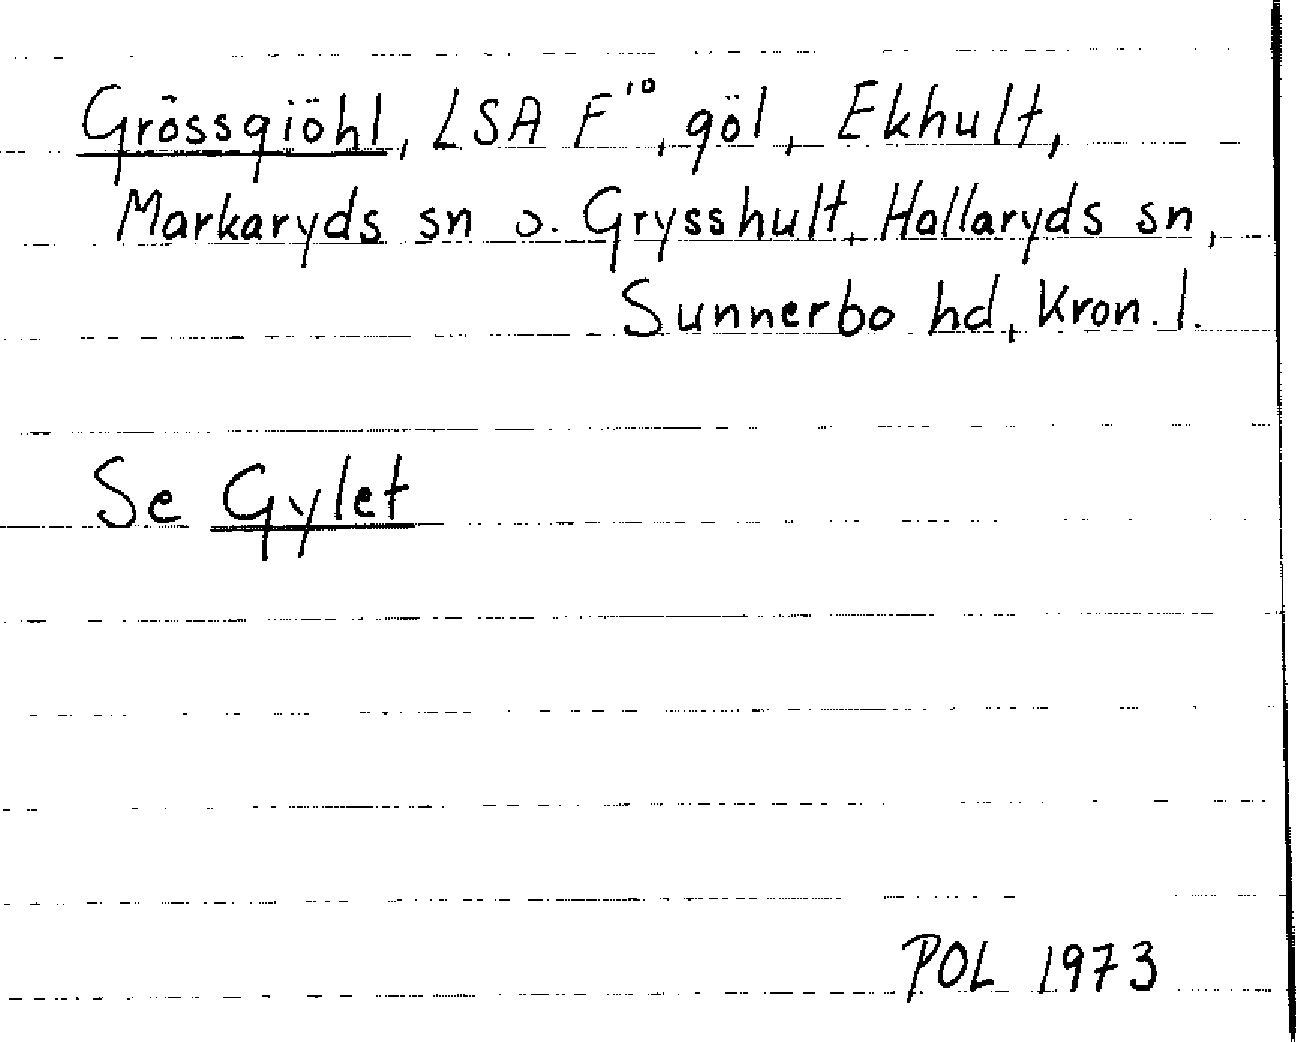 Grössgiöhl, LSA F¹⁰, göl, Ekhult,
Markaryds sn o. Grysshult, Hallaryds sn,
Sunnerbo hd, Kron. l.
Se Gylet
POL 1973